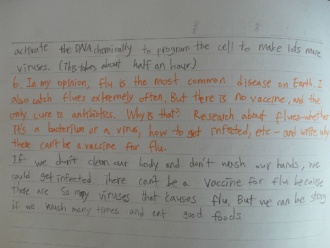 activate the DNA chemically to program the cell to make lots more
viruses. (This takes about half an hour)
6. In my opinion, flu is the most common disease on Earth. I
also catch flues extremely often. But there is no vaccine, and the
only cure is antibiotics. Why is that? Research about flues-whether
it's a bacterium or a virus, how to get infected, etc- and write why
there can't be a vaccine for flu.
If we don't clean our body and don't wash our hands, we
could get infected. there can't be a vaccine for flu because
there are so many viruses that causes flu. But we can be strong
if we wash many times and eat good foods